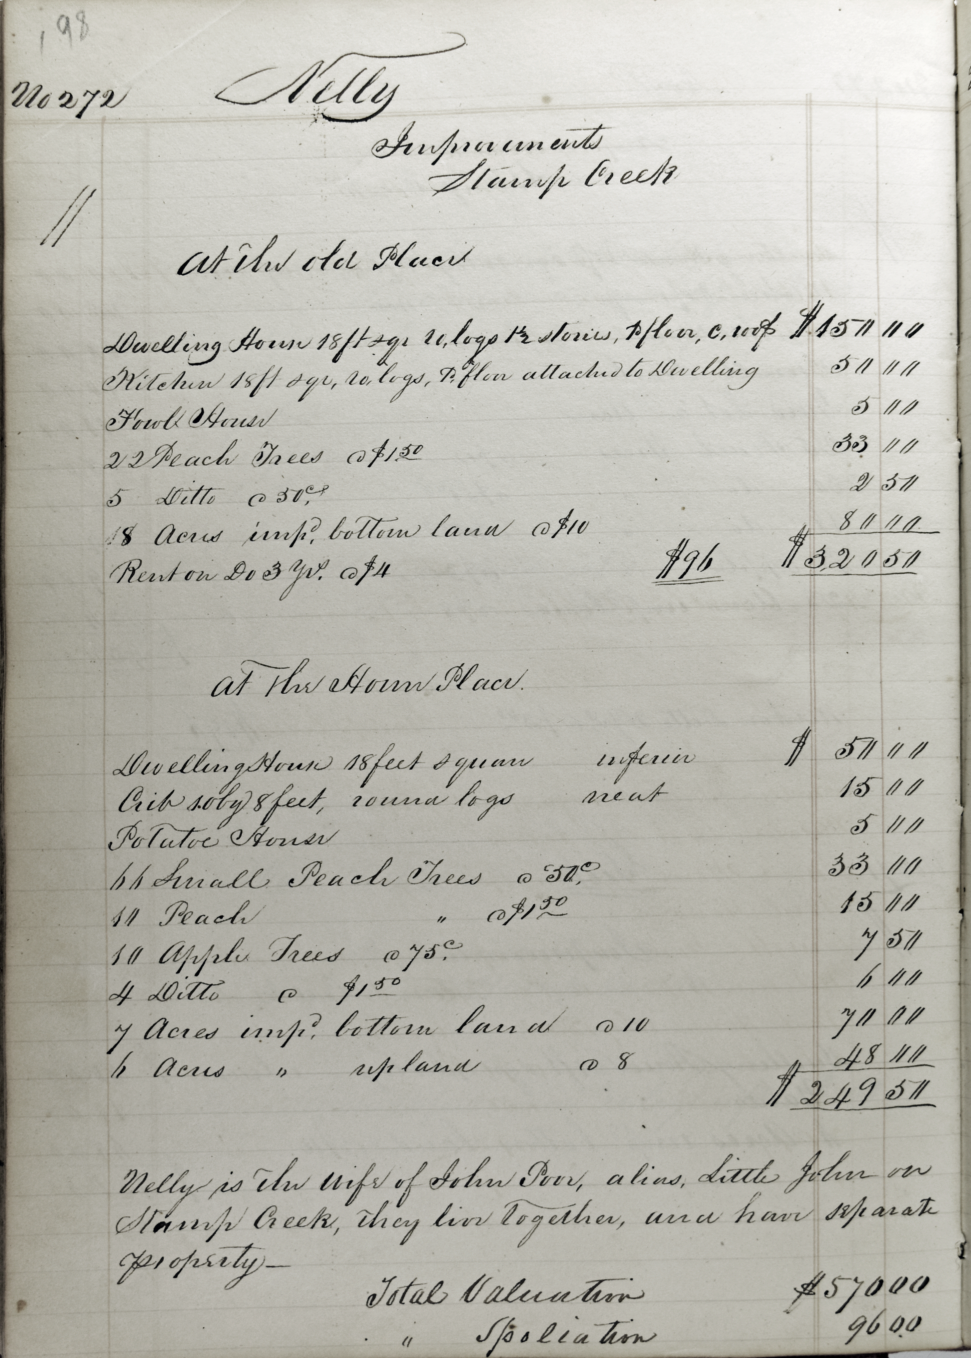 198
No 272 Nelly
Improvements
Stamp Creek
At the old Place
Dwelling House 18ft sqr h, logs 1½ stories, P. floor, c, roof $150 00
Kitchen 18ft sqr, h, logs, P. floor attached to Dwelling 50 00
Fowl House 5 00
22 Peach Trees @ $1.50 33 00
5 Ditto @ 50cs. 2 50
18 Acres impd. bottom land @ $10 80 00
Rent on Do 3 Yrs. @ $4 $96 $320 50
At the Home Place.
Dwelling House 18 feet square inferior $ 50 00
Crib 10 by 8 feet, round logs neat 15 00
Potatoe House 5 00
66 Small Peach Trees @ 50c. 33 00
10 Peach " @ $1.50 15 00
10 Apple Trees @ 75c. 7 50
4 Ditto @ $1.50 6 00
7 Acres impd. bottom land @ 10 70 00
6 Acres " upland @ 8 48 00
$249 50
Nelly is the wife of John Poor, alias, Little John on
Stamp Creek, they live together, and have separate
property—
Total Valuation $570 00
" Spoliation 96 00